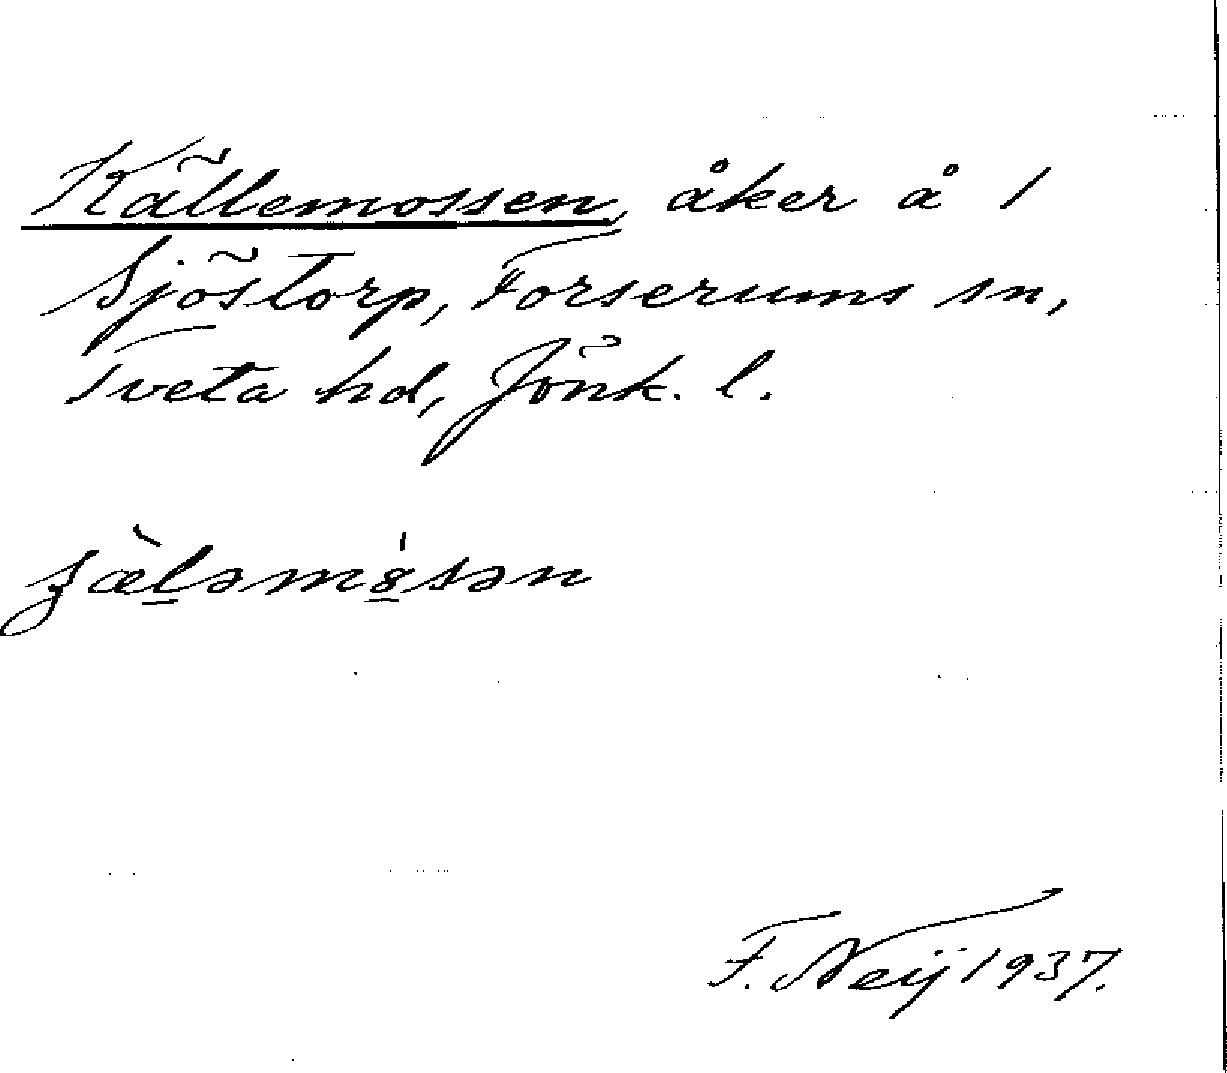 Källemossen, åker å 1
Sjöstorp, Forserums sn,
Tveta hd, Jönk. l.
F. Neij 1937.